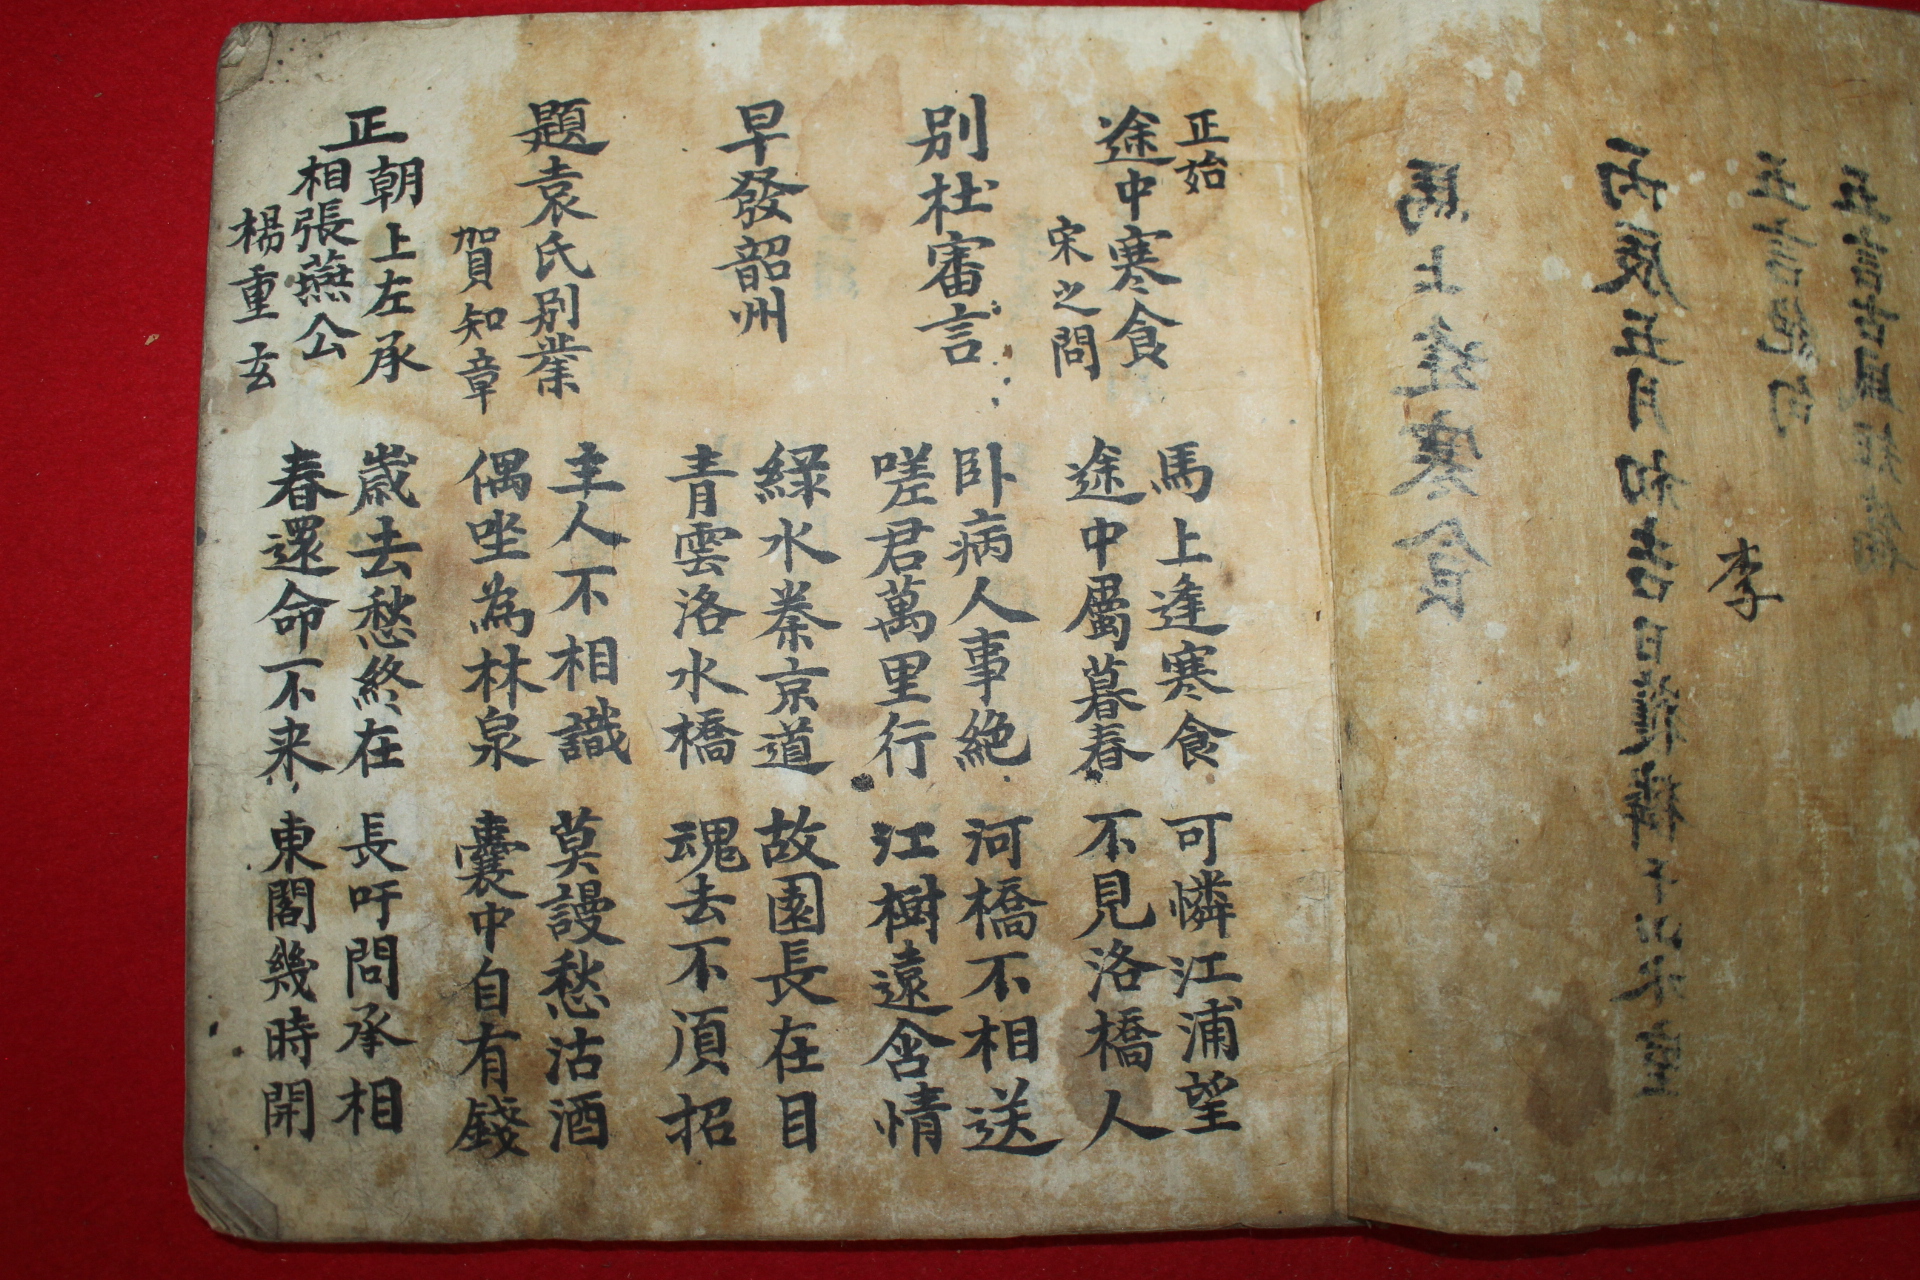 五言古風短篇
五言絶句
李
丙辰五月初吉日
馬上逢寒食
正始
途中寒食
宋之問
馬上逢寒食 可憐江浦望
途中屬暮春 不見洛橋人
别杜審言
卧病人事絶 河橋不相送
嗟君萬里行 江樹遠含情
早發韶州
綠水秦京道 故園長在目
青雲洛水橋 魂去不湏招
題袁氏别業
賀知章
主人不相識 莫謾愁沽酒
偶坐為林泉 囊中自有錢
正朝上左承
相張燕公
楊重玄
歲去愁終在 長吁問承相
春還命不来 東閣幾時開